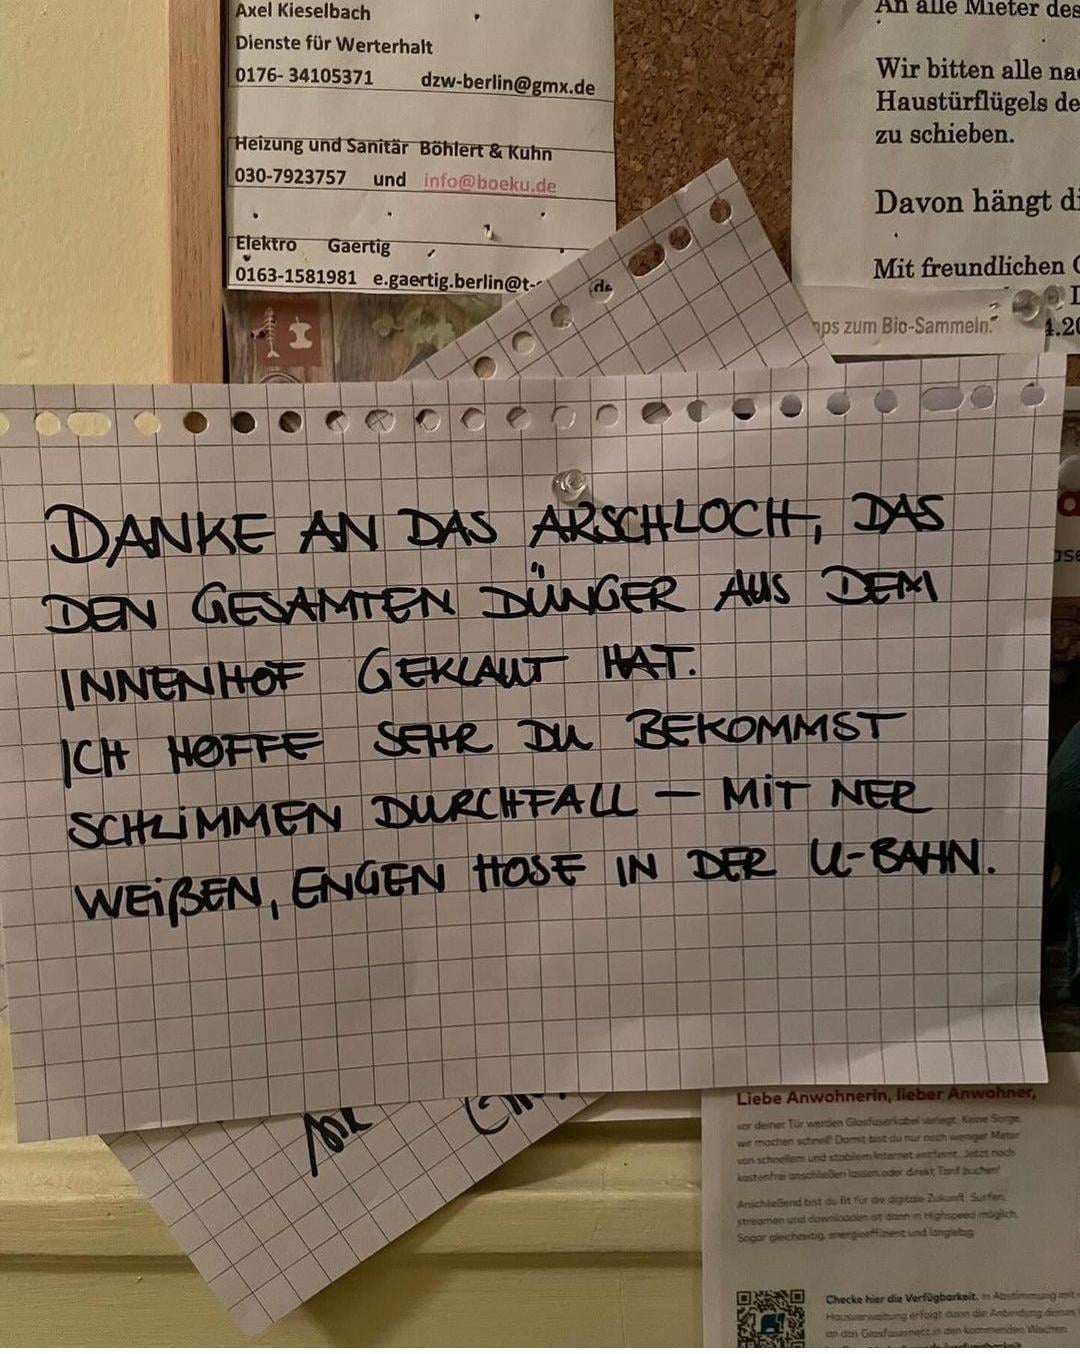 Axel Kieselbach
Dienste für Werterhalt
0176- 34105371 dzw-berlin@gmx.de
Heizung und Sanitär Böhlert & Kuhn
030-7923757 und info@boeku.de
Elektro Gaertig
0163-1581981 e.gaertig.berlin@t- .de
An alle Mieter des
Wir bitten alle
Haustürflügels
zu schieben.
Davon hängt
Mit freundlichen
zum Bio-Sammeln.
DANKE AN DAS ARSCHLOCH, DAS
DEN GESAMTEN DÜNGER AUS DEM
INNENHOF GEKLAUT HAT.
ICH HOFFE SEHR DU BEKOMMST
SCHLIMMEN DURCHFALL – MIT NER
WEIßEN, ENGEN HOSE IN DER U-BAHN.
Liebe Anwohnerin, lieber Anwohner,
vor deiner Tür werden Glasfaserkabel verlegt. Keine Sorge,
wir machen schnell! Damit bist du nur noch weniger Meter
von schnellem und stabilem Internet entfernt. Jetzt noch
kostenfrei anschließen lassen oder direkt Tarif buchen!
Anschließend bist du fit für die digitale Zukunft. Surfen,
streamen und downloaden ist dann in Highspeed möglich.
Sogar gleichzeitig, energieeffizient und langlebig.
Checke hier die Verfügbarkeit. In Abstimmung mit
Hausverwaltung erfolgt dann die Anbindung deines
an das Glasfasernetz in den kommenden Wochen